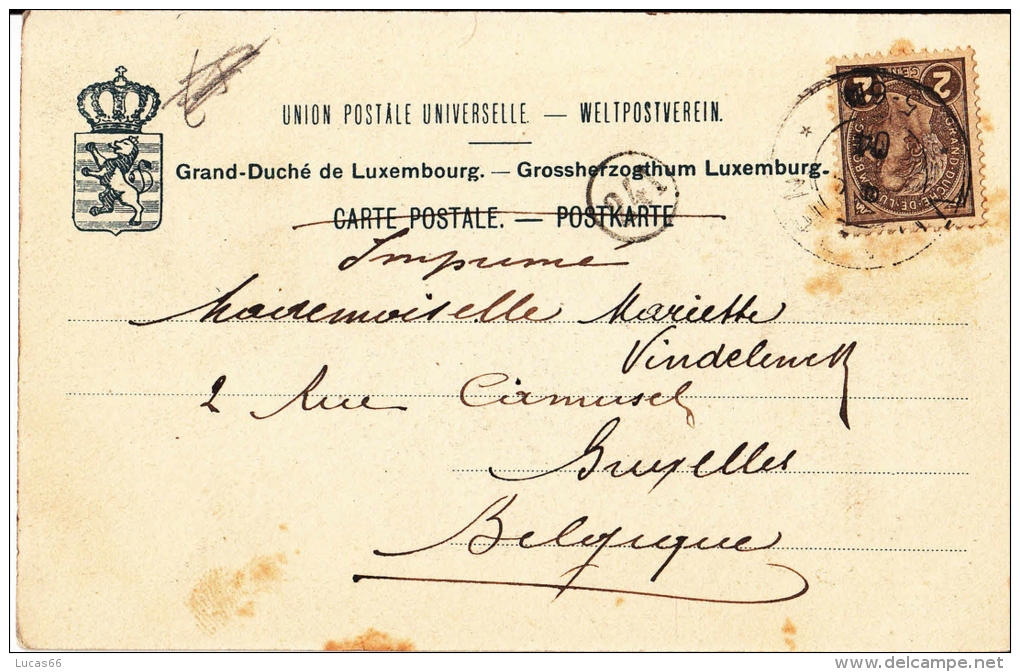 UNION POSTALE UNIVERSELLE. — WELTPOSTVEREIN.
Grand-Duché de Luxembourg. — Grossherzogthum Luxemburg.
CARTE POSTALE. — POSTKARTE
Imprimé
Mademoiselle Mariette
Vindelinck
2 Rue Camusel
Bruxelles
Belgique
2 2
GRAND-DUCHÉ-DE-LUXEMBOURG
Lucas66
delcampe.net